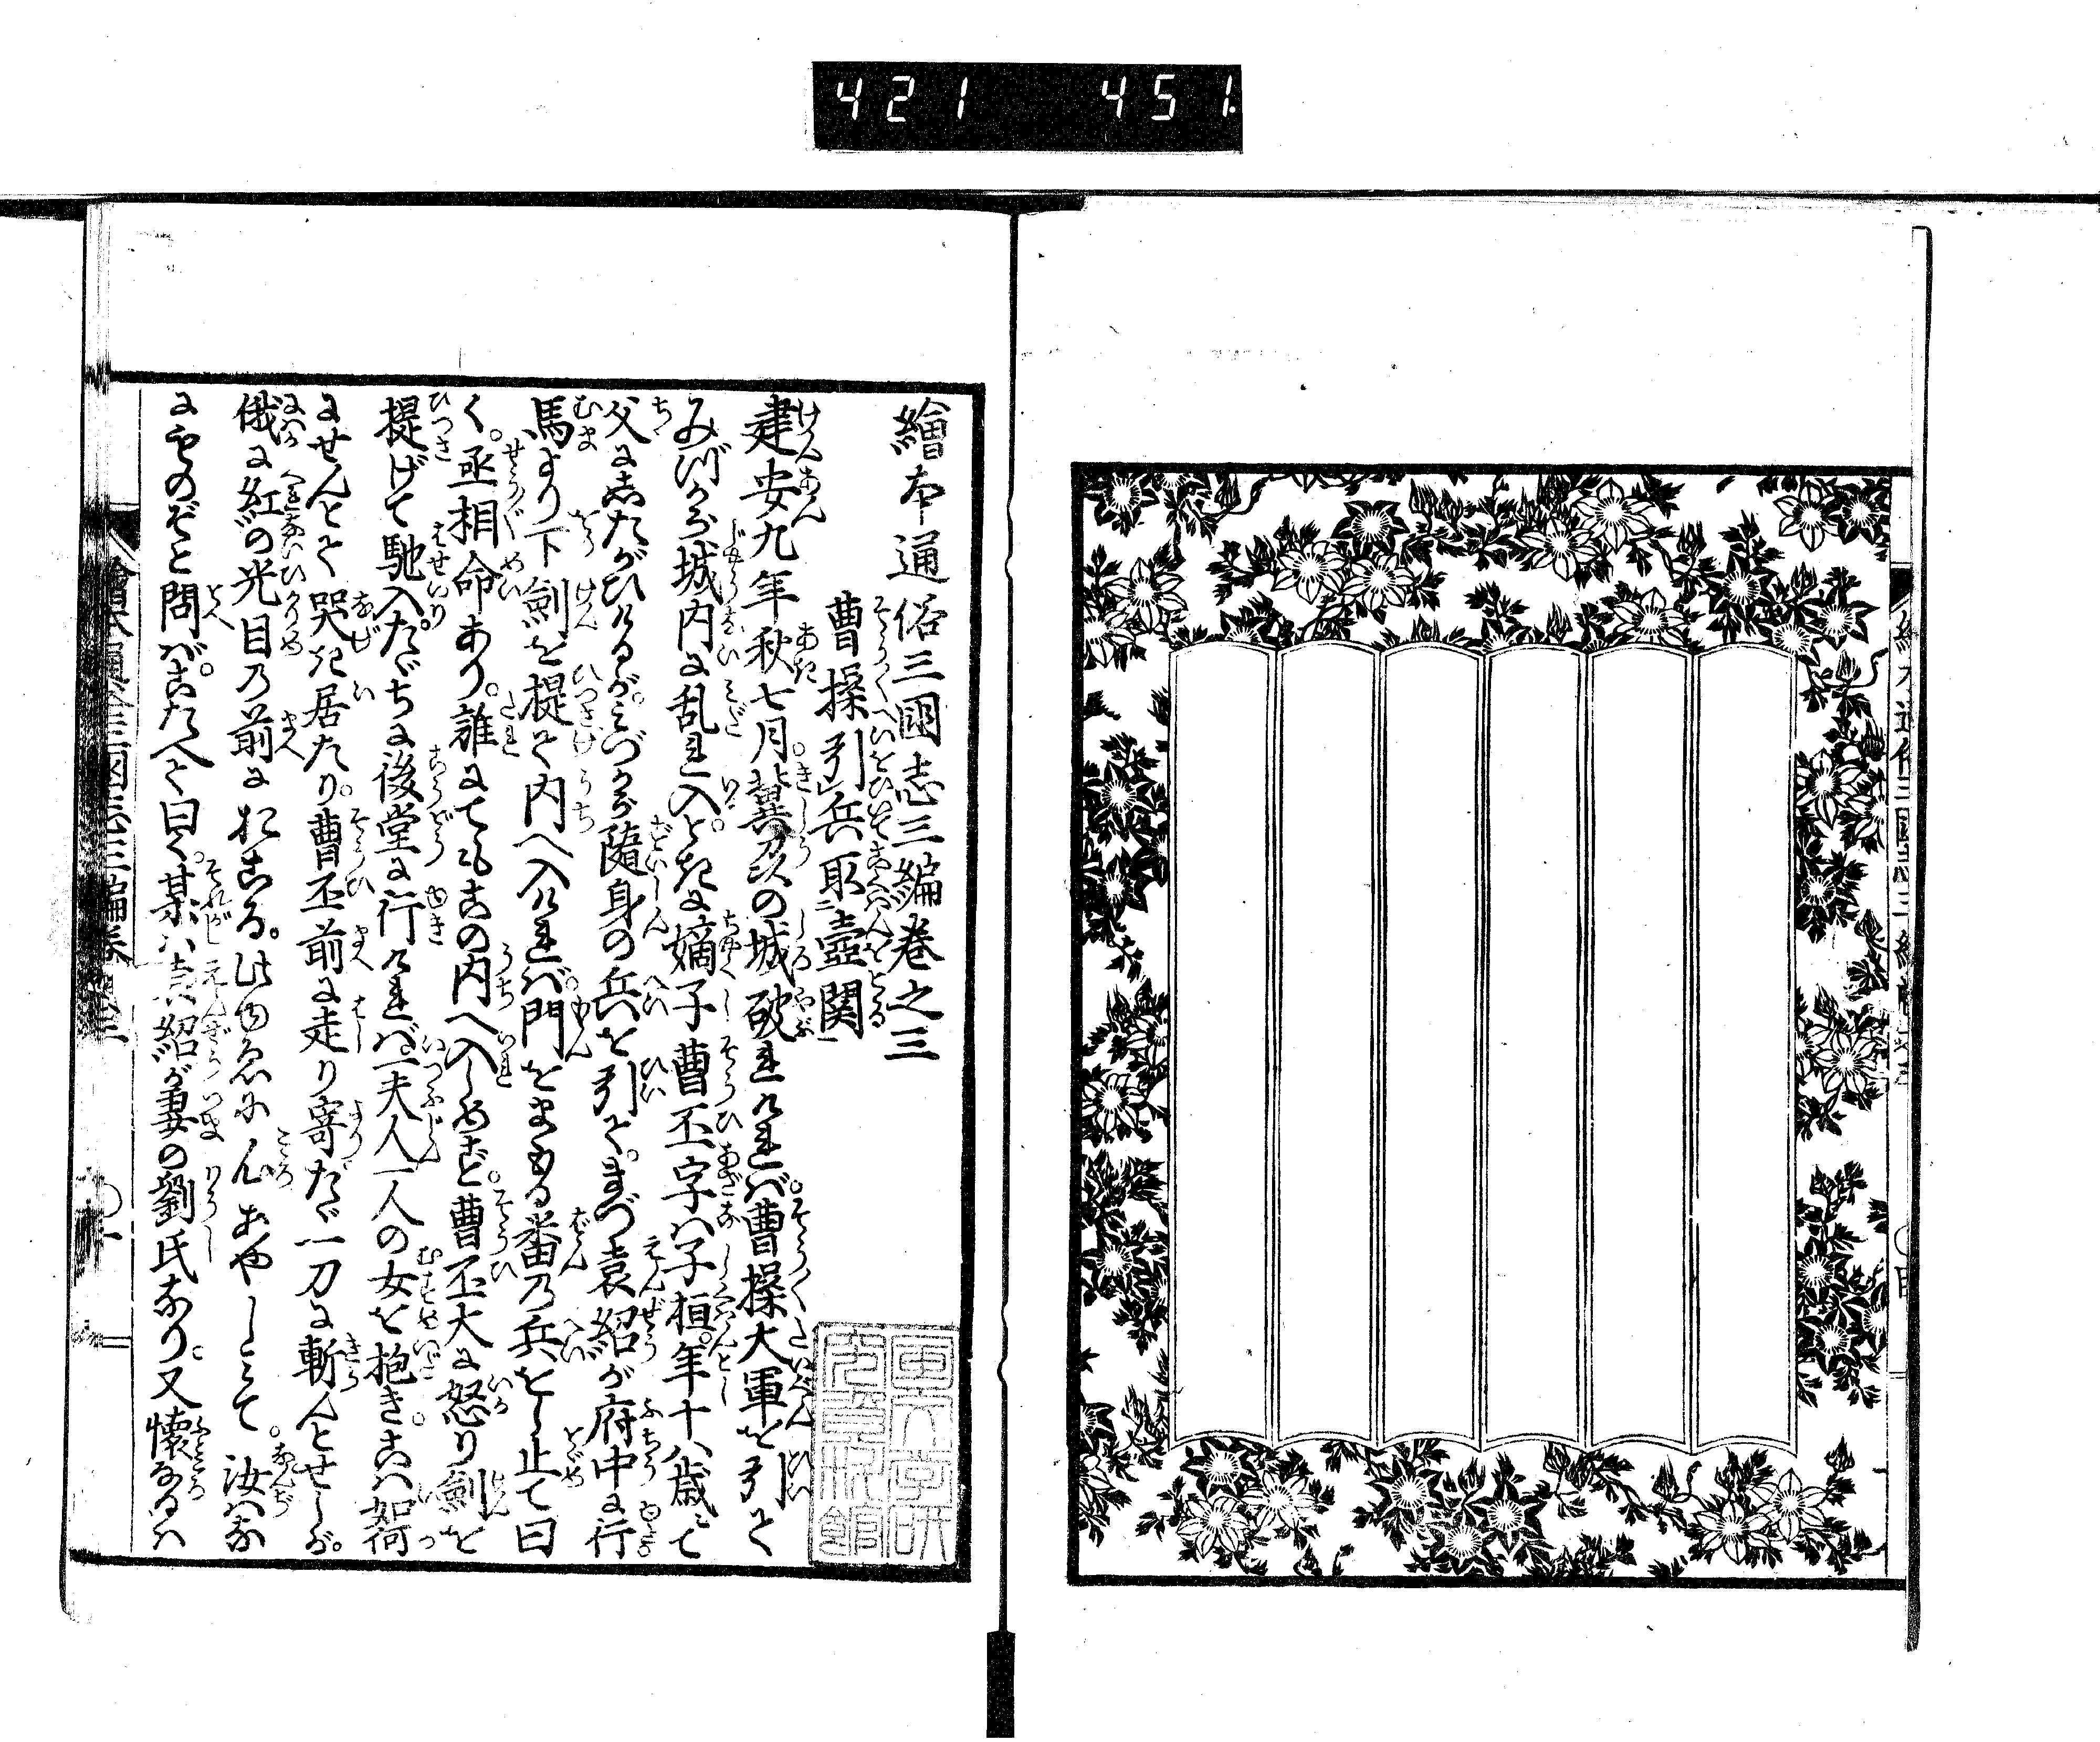 421 451
繪本通俗三國志三編巻之三
曹操引兵取壺関
建安九年秋七月冀州の城破れければ。曹操大軍を引て
みづから城内に乱れ入。ときに嫡子曹丕字は子桓。年十八歳にて
父にしたがひけるが。みづから隨身の兵を引て。まづ袁紹が府中に行
馬より下劍を提て内へ入ければ。門をまもる番の兵をし止て曰
く。丞相命あり。誰にてもこの内へ入しめずと。曹丕大に怒り劍を
提げて馳入。たゞちに後堂に行ければ。一夫人一人の女を抱き。こは如何
にせんとて哭き居たり。曹丕前に走り寄たゞ一刀に斬んとせしが。
俄に紅の光目の前におこる。此ゆゑに心あやしみて。汝はな
にものぞと問ば。こたへて曰く。某は袁紹が妻の劉氏なり。又懷なるは
繪本通俗三國志三編巻之三